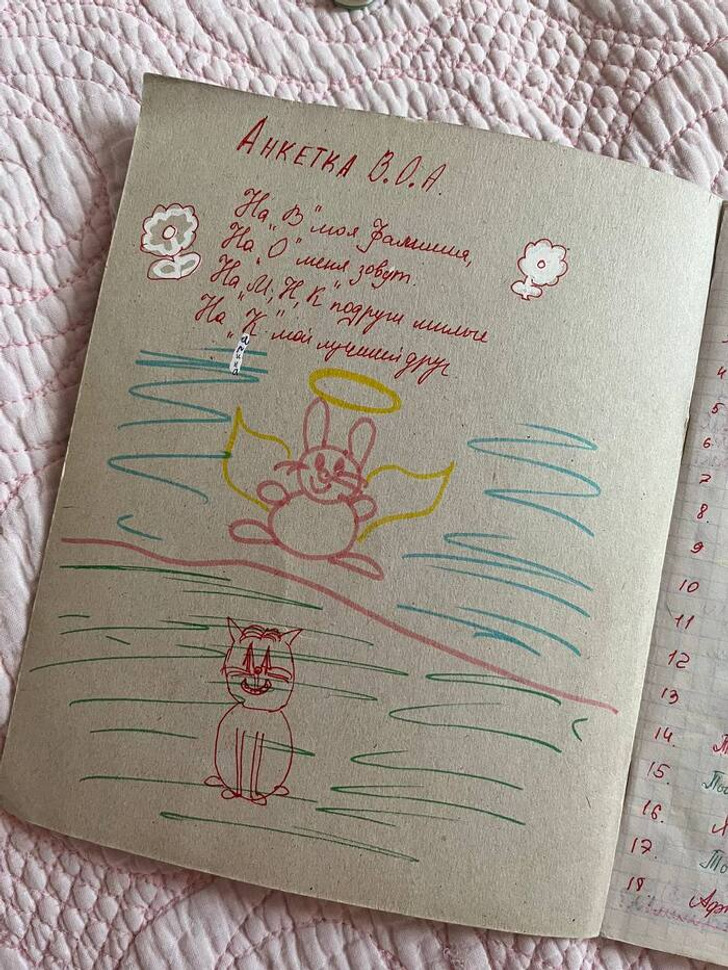 АНКЕТКА В.О.А.
На "В" моя фамилия,
На "О" меня зовут.
На "М, Н, К" подруги милые
На "К"
"К" мой лучший друг.
4
5
6
7
8.
9
10
11
12
13
14.
15.
16.
17.
18